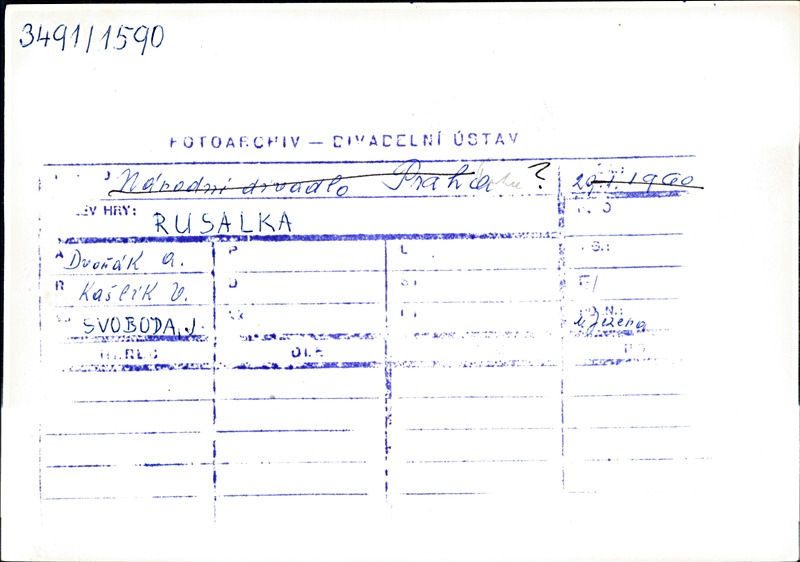 3491/1590
FOTOARCHIV – DIVADELNÍ ÚSTAV
Národní divadlo Praha ? 29.1.1960
EV HRY: RUSALKA
A Dvořák A. P L
R Kašlík V. O F/
SVOBODA J.
HEREC OLE